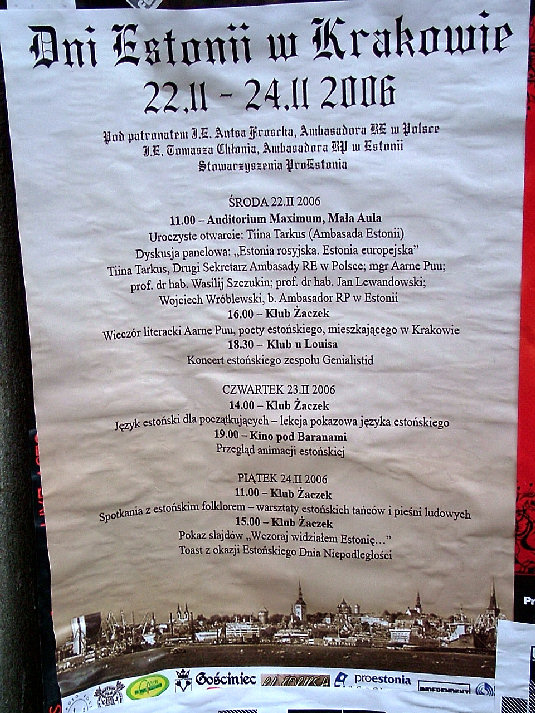 Dni Estonii w Krakowie
22.II - 24.II 2006
Pod patronatem J.E. Antsa Froscha, Ambasadora RE w Polsce
J.E. Tomasza Chłonia, Ambasadora RP w Estonii
Stowarzyszenia ProEstonia
ŚRODA 22.II 2006
11.00 – Auditorium Maximum, Mała Aula
Uroczyste otwarcie: Tiina Tarkus (Ambasada Estonii)
Dyskusja panelowa: „Estonia rosyjska. Estonia europejska”
Tiina Tarkus, Drugi Sekretarz Ambasady RE w Polsce; mgr Aarne Puu;
prof. dr hab. Wasilij Szczukin; prof. dr hab. Jan Lewandowski;
Wojciech Wróblewski, b. Ambasador RP w Estonii
16.00 – Klub Żaczek
Wieczór literacki Aarne Puu, poety estońskiego, mieszkającego w Krakowie
18.30 – Klub u Louisa
Koncert estońskiego zespołu Genialistid
CZWARTEK 23.II 2006
14.00 – Klub Żaczek
Język estoński dla początkujących – lekcja pokazowa języka estońskiego
19.00 – Kino pod Baranami
Przegląd animacji estońskiej
PIĄTEK 24.II 2006
11.00 – Klub Żaczek
Spotkania z estońskim folklorem – warsztaty estońskich tańców i pieśni ludowych
15.00 – Klub Żaczek
Pokaz slajdów „Wczoraj widziałem Estonię...”
Toast z okazji Estońskiego Dnia Niepodległości
Gościniec proestonia